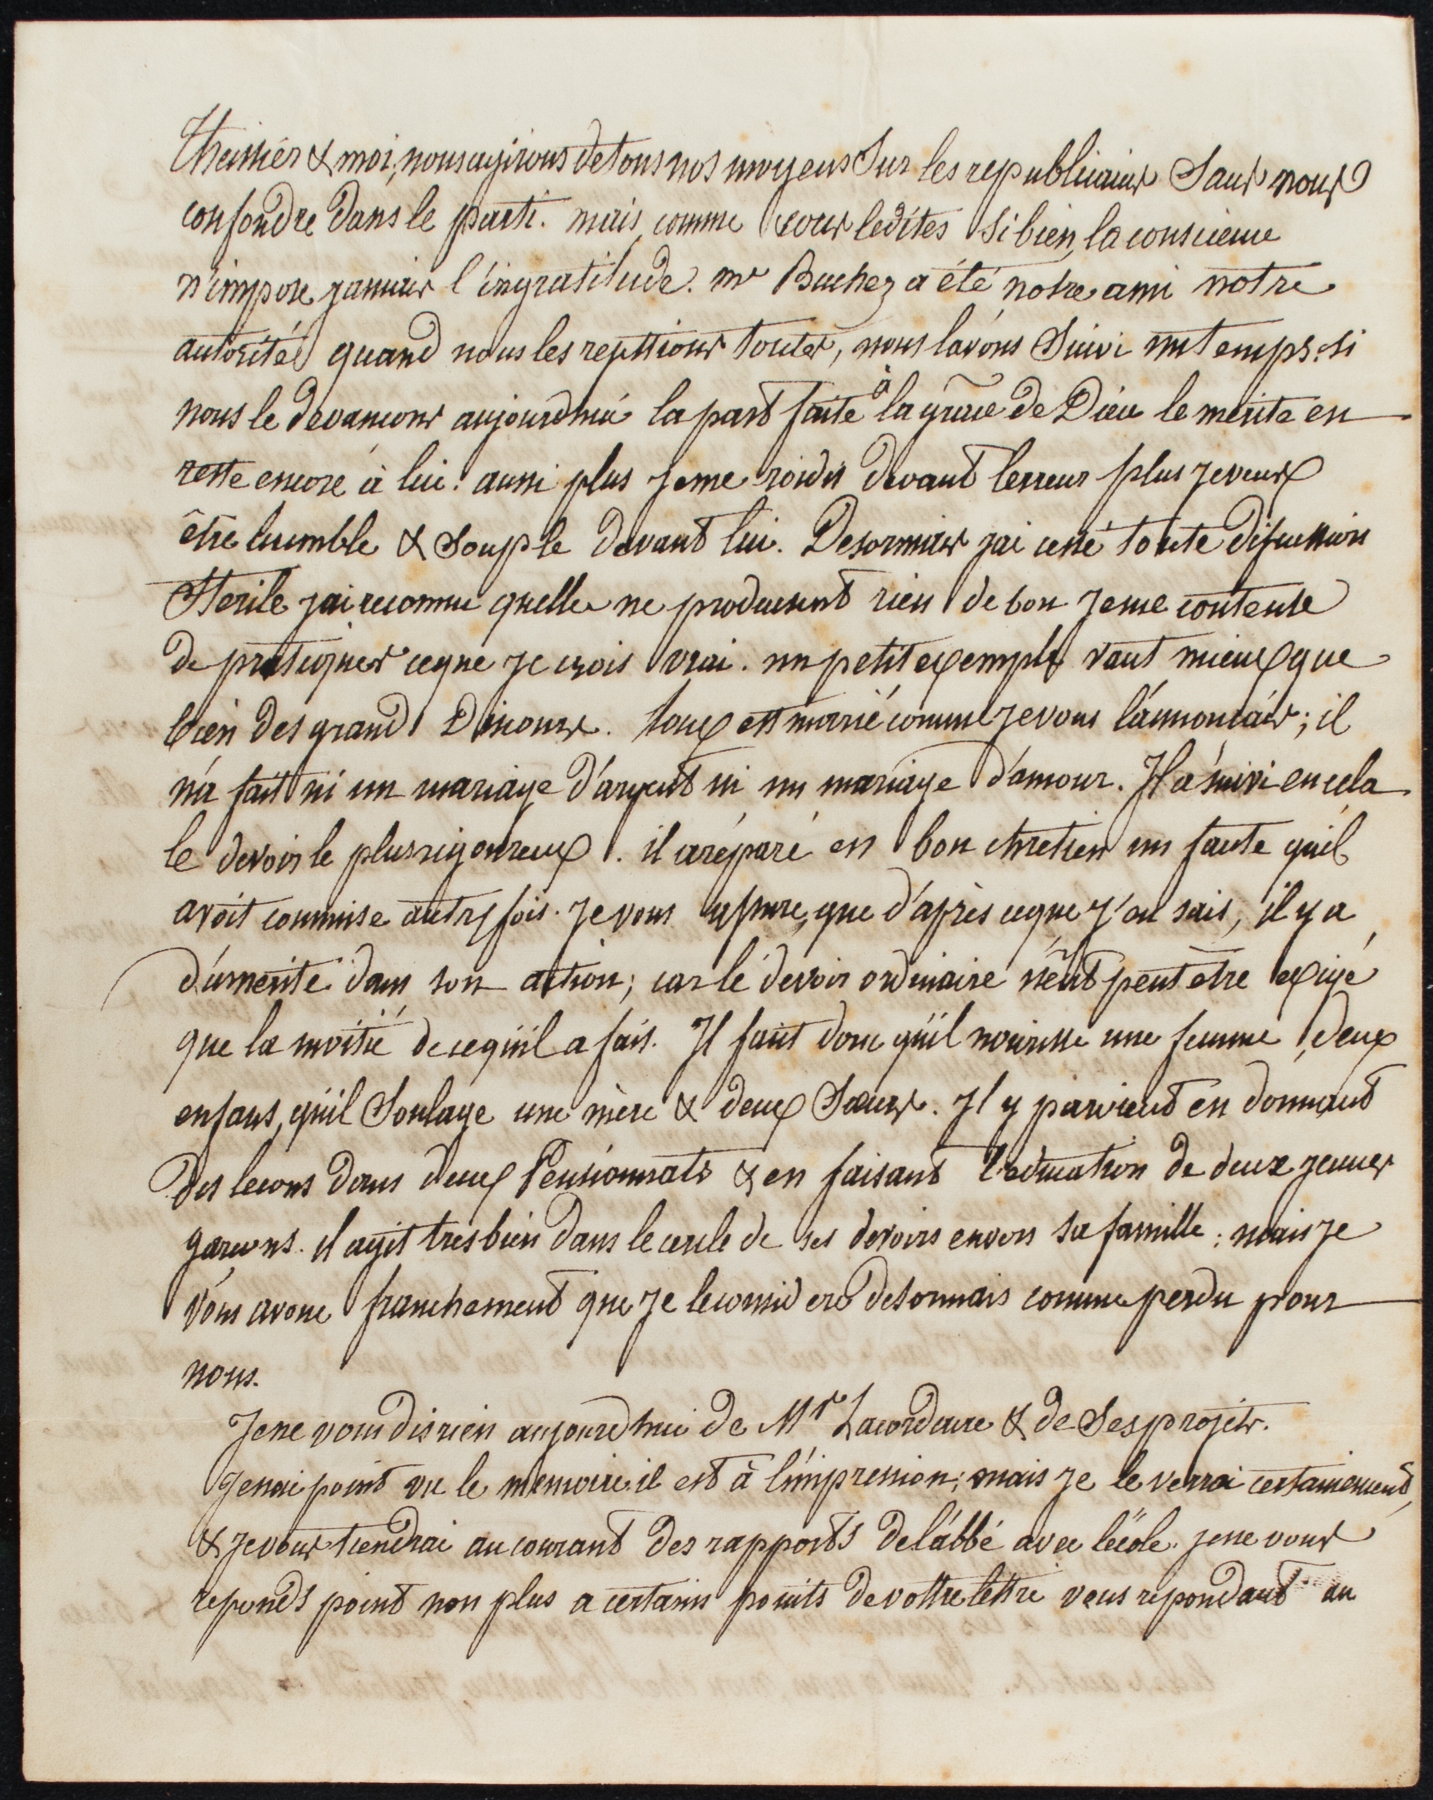 Theissier & moi, nous agirons de tous nos moyens sur les republicains sans nous
confondre dans le parti. mais, comme vous le dites si bien, la conscience
n'impose jamais l'ingratitude. mr Buchez a été notre ami notre
autorité quand nous les rejettions toutes, nous l'avons suivi un temps. si
nous le devancons aujourdhui la part faite à la grace de Dieu le merite en
reste encore à lui. aussi plus je me roidis devant l'erreur plus je veux
être humble & souple devant lui. Desormais jai cessé toute discussion
sterile jai reconnu quelles ne produisent rien de bon je me contente
de pratiquer ceque je crois vrai. un petit exemple vaut mieux que
bien des grand Discours. est marié comme je vous l'annoncais; il
n'a fait ni un mariage d'argent ni un mariage d'amour. Il a suivi en cela
le devoir le plus rigoureux. il a réparé en bon chretien un faute quil
avoit commise autrefois. Je vous assure, que d'après ceque j'en sais, il y a
du merite dans son action; car le devoir ordinaire n'eut peut etre exigé
que la moitié de cequ'il a fais. Il faut donc qu'il nourisse une femme, deux
enfans, qu'il soulage une mère & deux soeurs. Il y parvient en donnant
des lecons dans deux Pensionnats & en faisant l'education de deux jeunes
garcons. il agit tres bien dans le cercle de ses devoirs envers sa famille: mais je
vous avoue franchement que je le considere desormais comme perdu pour
nous.
Je ne vous dis rien aujourdhui de Mr Lacordaire & de ses projets.
Je nai point vu le memoire il est à l'impression; mais je le verrai certainement,
& je vous tiendrai au courant des rapports de l'abbé avec l'école. je ne vous
reponds point non plus a certains points de vottre lettre vous repondant au